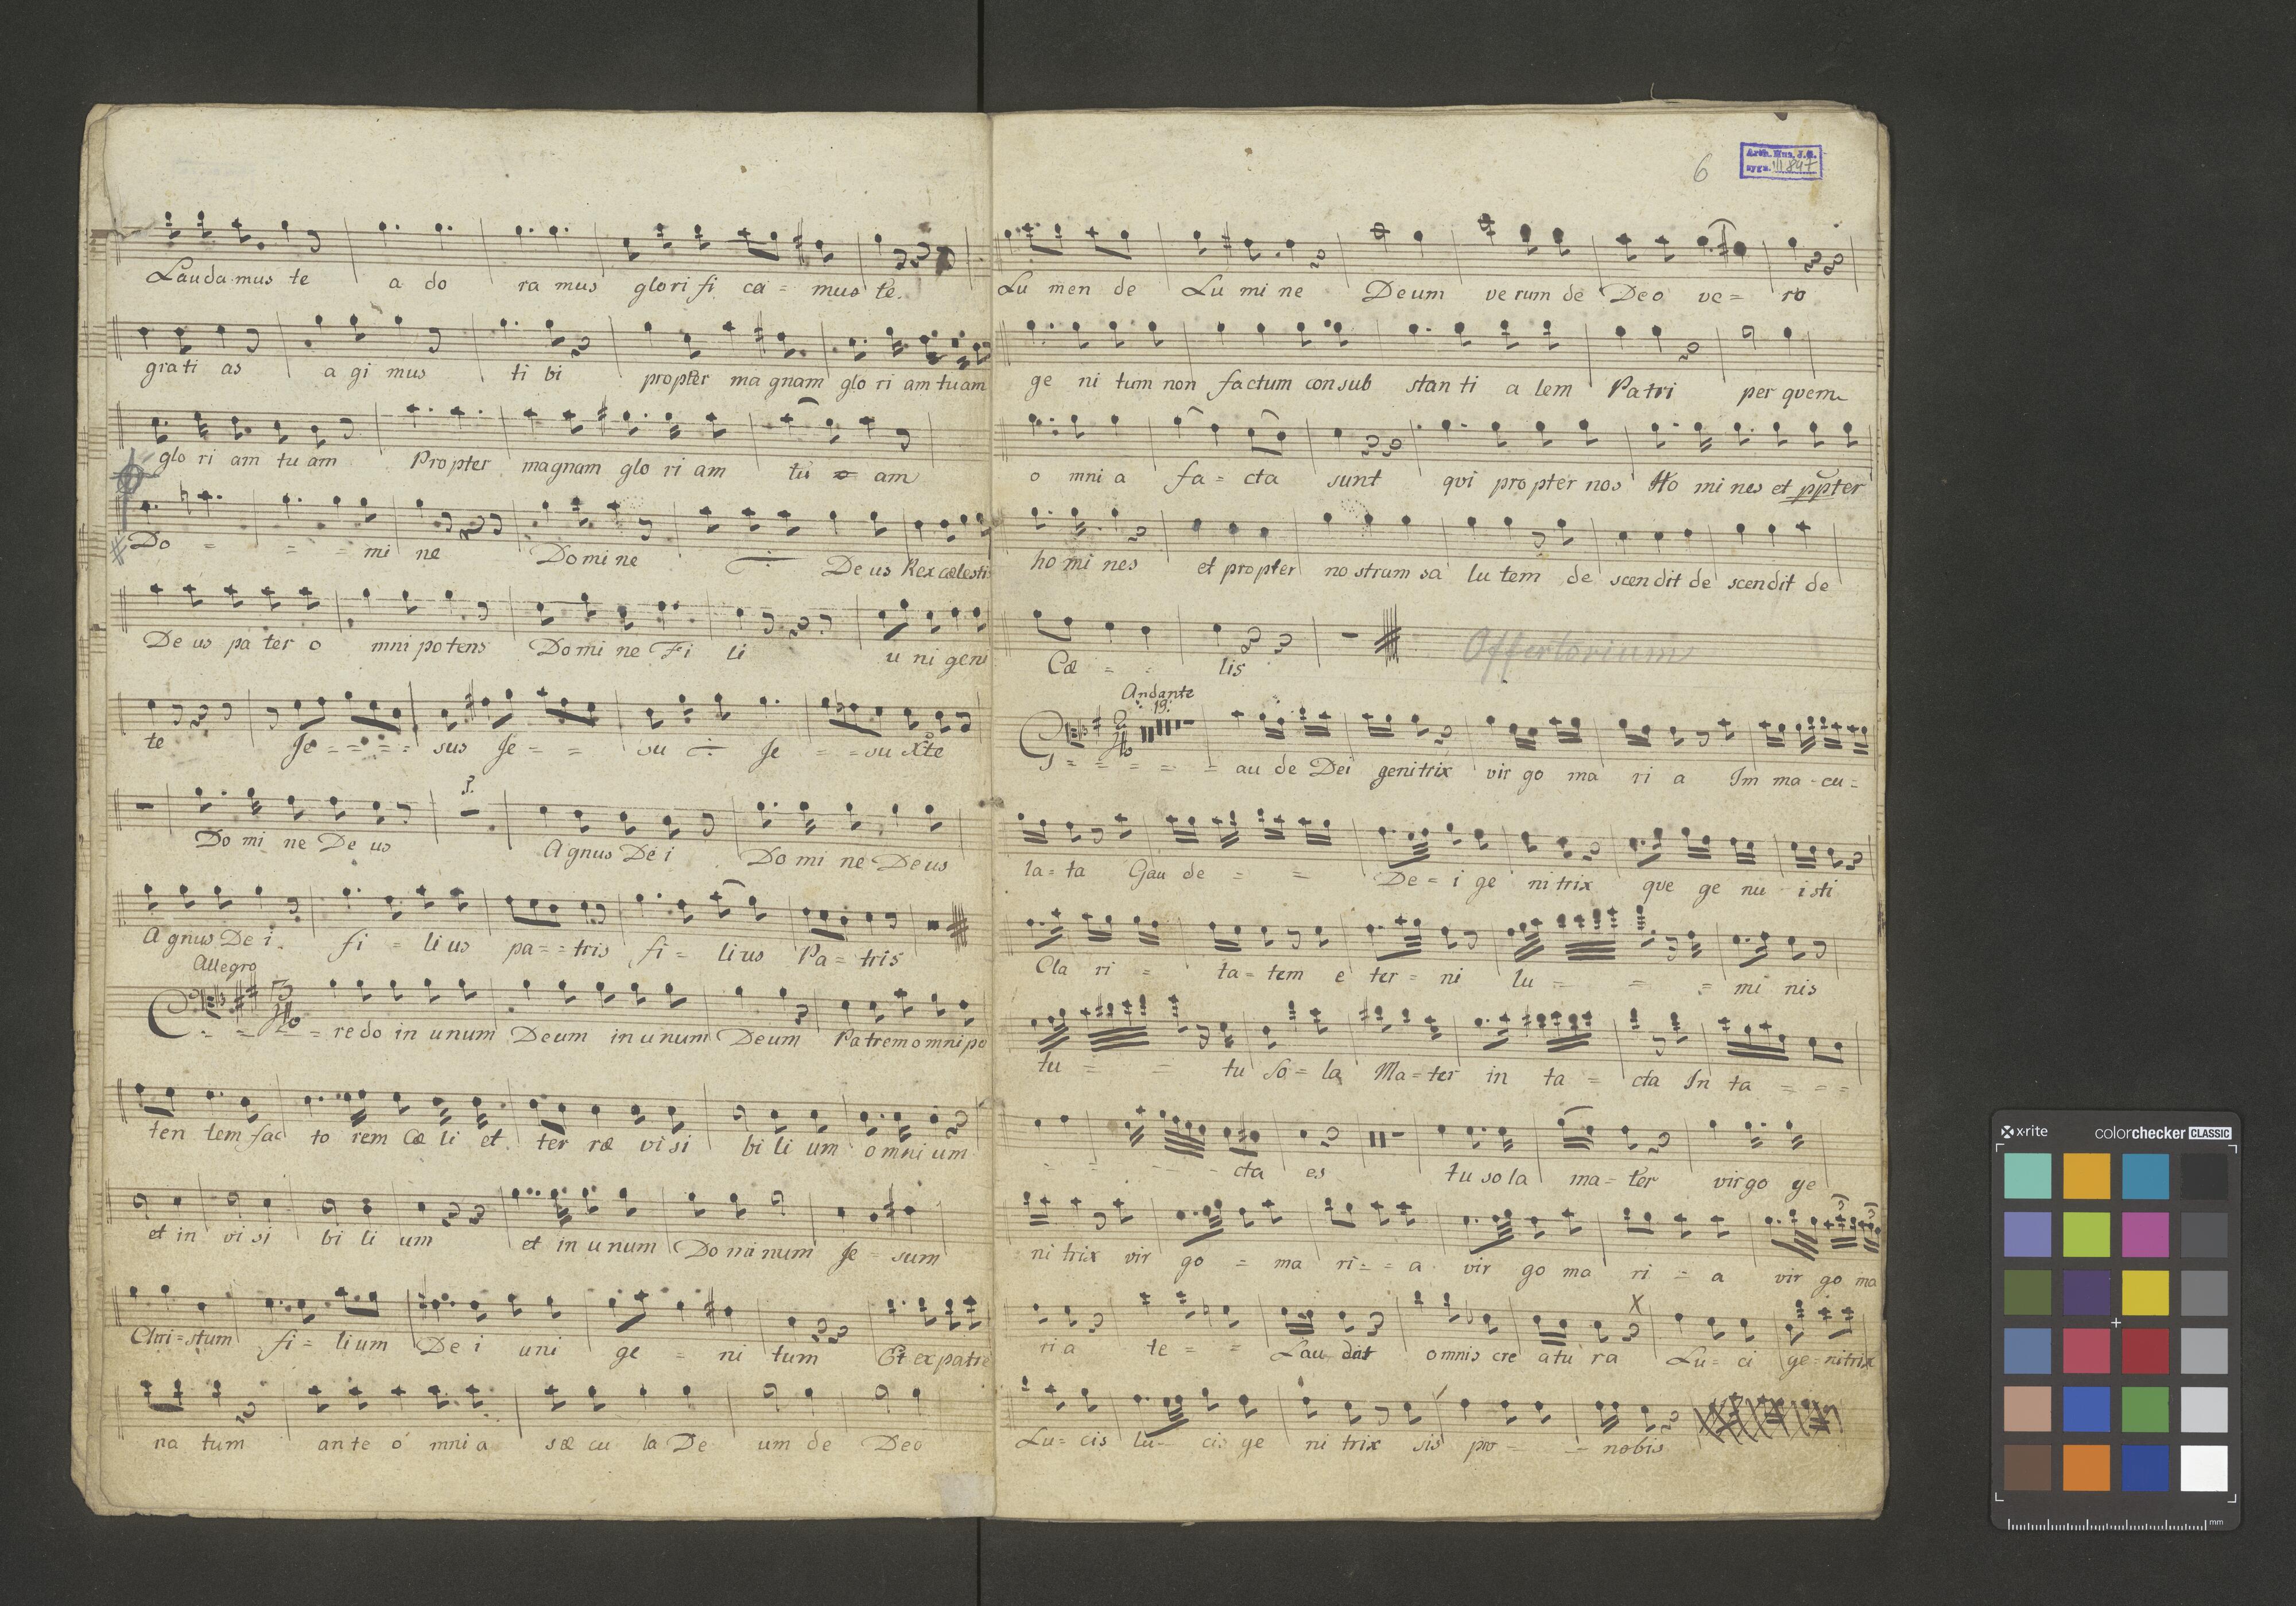 Laudamus te a do ra mus glo ri fi ca = mus te.
gra ti as a gi mus ti bi propter ma gnam glo ri am tu am
glo ri am tu am Propter magnam glo ri am tu am
Do = = mi ne Domine ÷ De us Rex cælesti
De us pa ter o mni po tens Do mi ne Fi li u ni geni
te Je = = = = sus Je = = su ÷ Je = = su Xte
Do mi ne De us A gnus De i Do mi ne De us
A gnus De i fi = li us pa = = tris fi = li us Pa = tris
Allegro
C = = = re do in unum Deum in unum Deum Patrem omnipo
ten tem fac to rem Cæ li et ter ræ vi si bi li um omni um
et in vi si bi li um et in unum Do mi num Je = sum
Chri = stum fi = li um De i uni ge = ni tum Et ex patre
na tum an te o mni a sæ cu la De um de Deo
6
Arch. Muz. J.G.
sygn. III 897
Lu men de Lu mi ne Deum ve rum de Deo ve = ro
ge ni tum non factum con sub stan ti a lem Patri per quem
o mni a fa = cta sunt qui propter nos Ho mi nes et ppter
ho mi nes et propter nostram sa lu tem de scen dit de scendit de
Cæ = = lis
Offertorium
Andante
19.
G = = = = = au de Dei genitrix vir go ma ri a Im ma - cu =
la = ta Gau de = = De = i ge ni trix que ge nu isti
Cla ri = ta = tem e ter = ni lu = = = mi nis
tu = = tu so = la Ma = ter in ta = cta In ta = = =
= = = = cta es tu so la ma = ter virgo ge
ni trix vir go = ma ri = = a vir go ma ri = a vir go ma
ri a te = = Lau dat omnis cre a tu ra Lu = ci ge = nitrix
Lu = cis lu - cis ge ni trix sis pro = = nobis
x-rite
colorchecker CLASSIC
mm